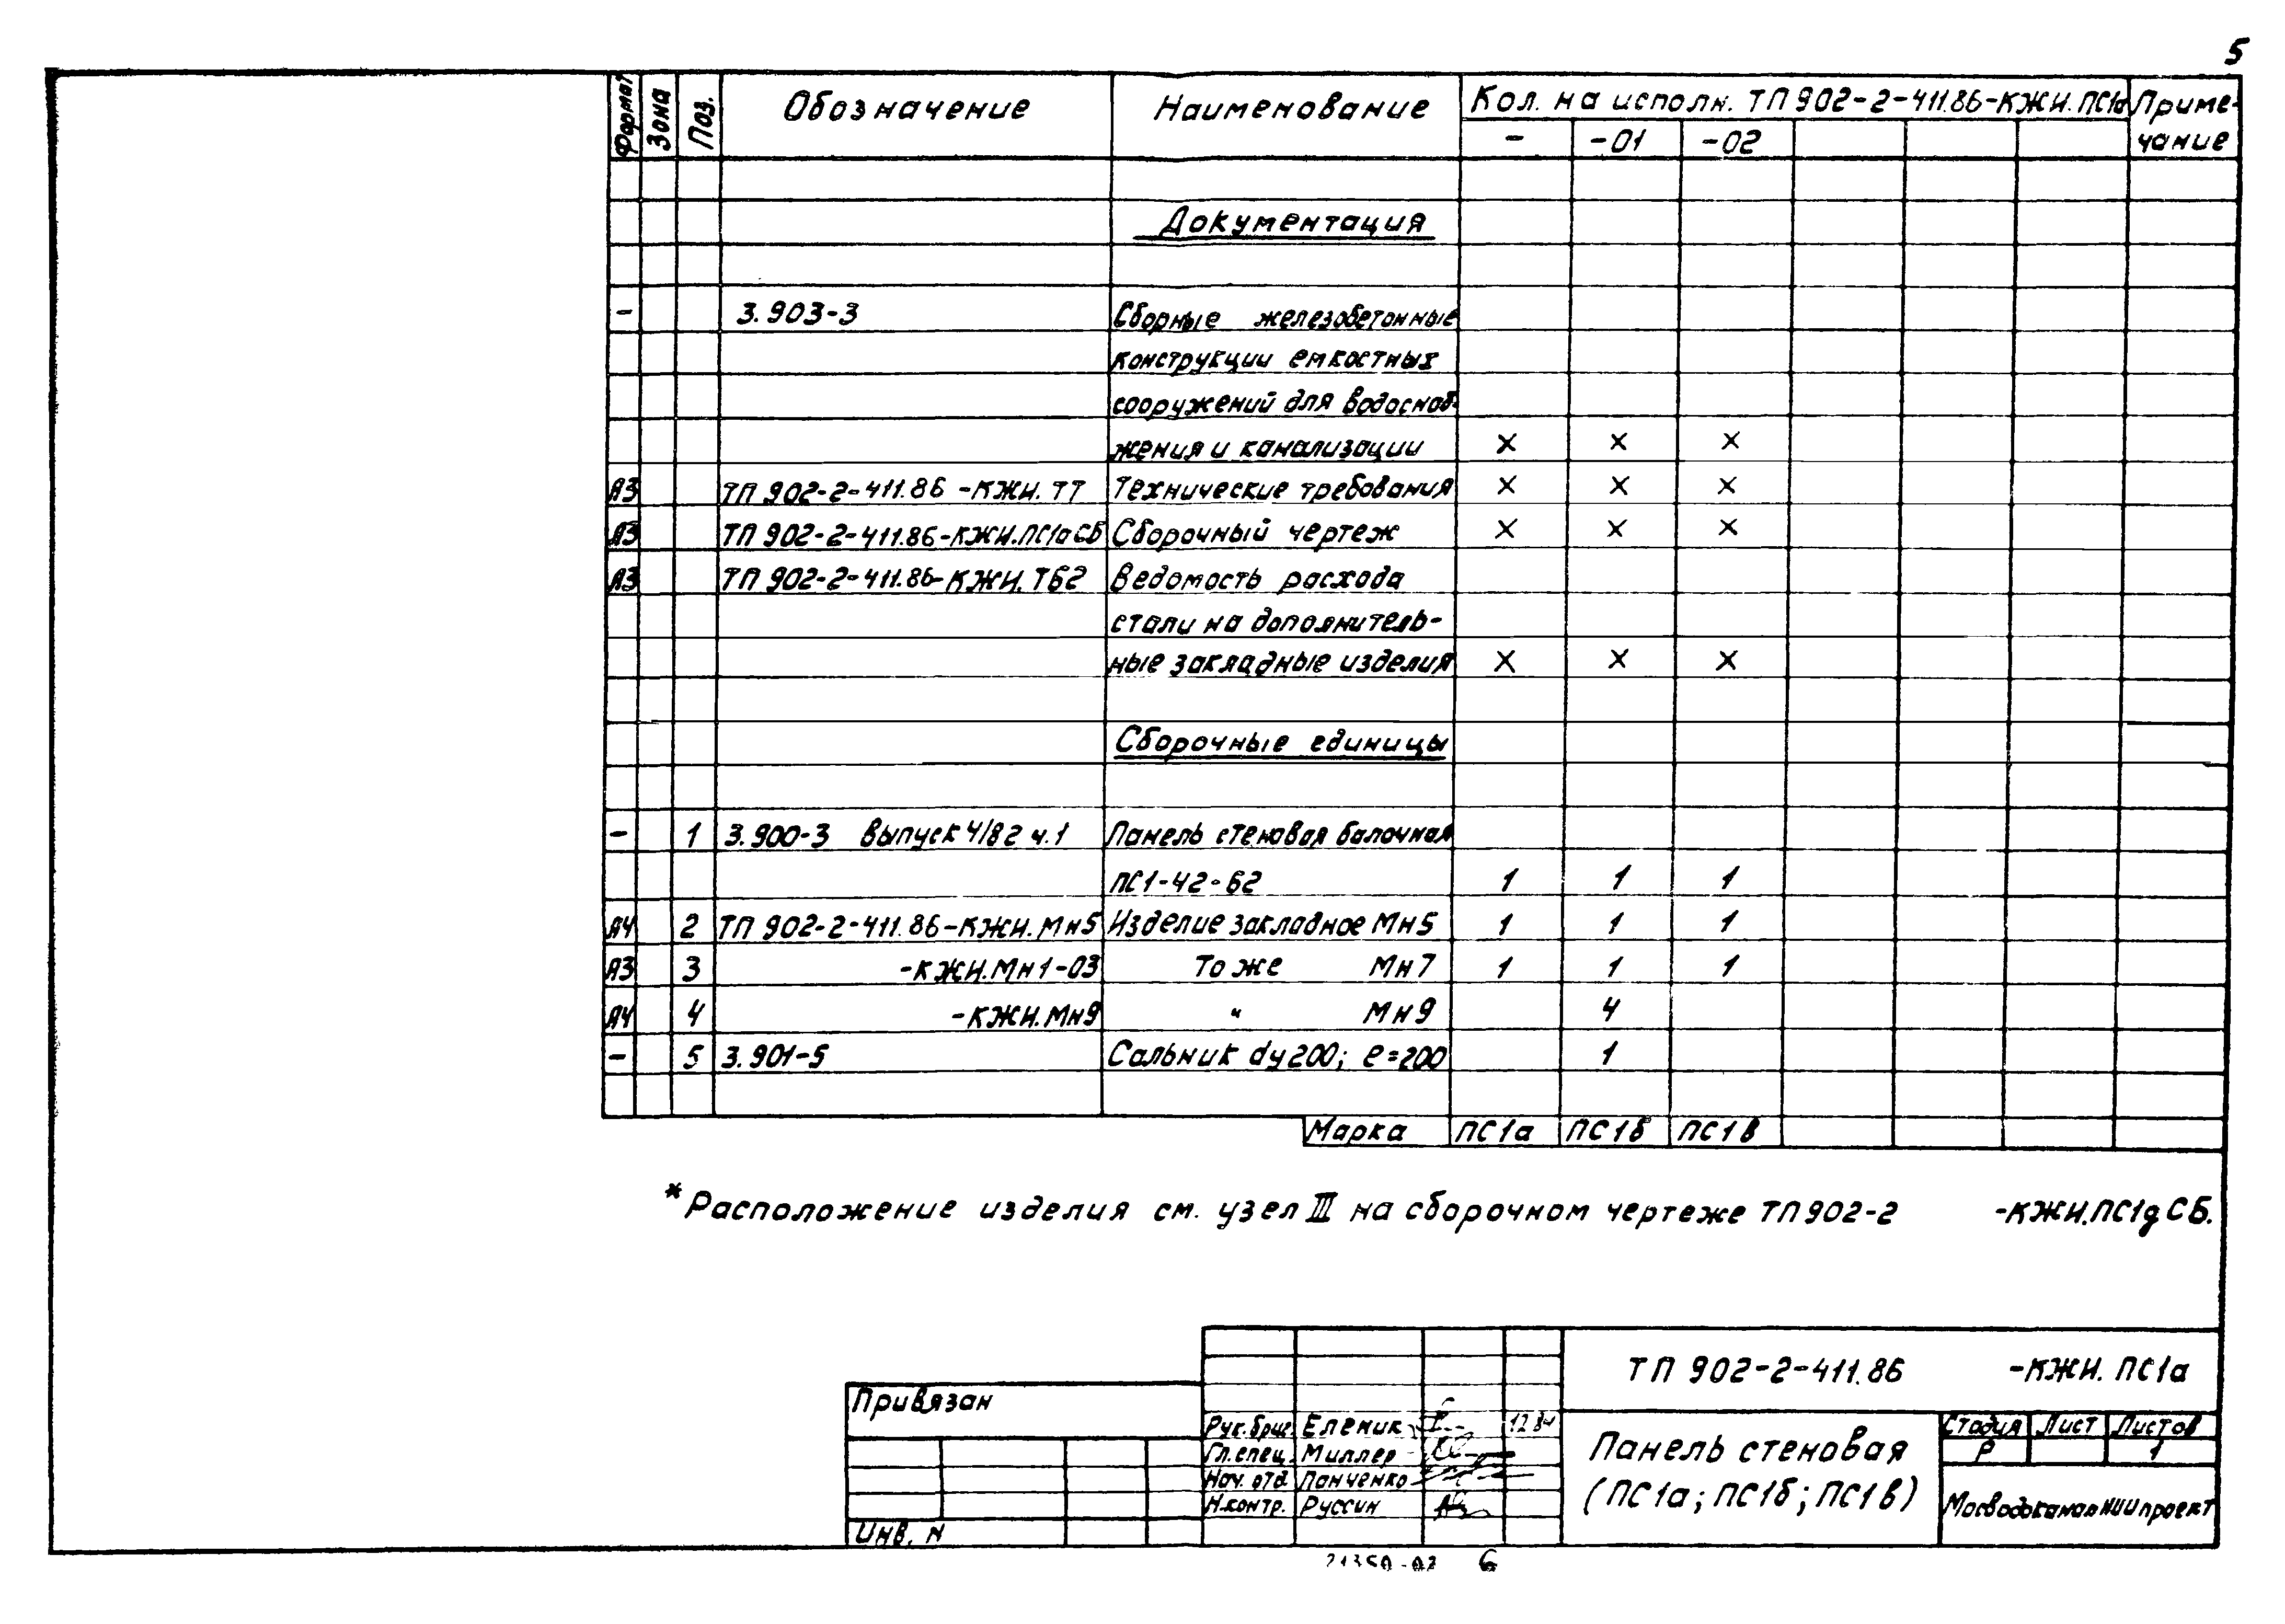 5
Формат Зона Поз. Обозначение Наименование Кол. на исполн. ТП 902-2-411.86-КЖИ.ПС1а Приме-
- -01 -02 чание
Документация
- 3.903-3 Сборные железобетонные
конструкции емкостных
сооружений для водоснаб-
жения и канализации × × ×
А3 ТП 902-2-411.86 -КЖИ. ТТ Технические требования × × ×
А3 ТП 902-2-411.86-КЖИ.ПС1аСБ Сборочный чертеж × × ×
А3 ТП 902-2-411.86-КЖИ.ТБ2 Ведомость расхода
стали на дополнитель-
ные закладные изделия × × ×
Сборочные единицы
- 1 3.900-3 Выпуск 4/82 ч.1 Панель стеновая балочная
ПС1-42-Б2 1 1 1
А4 2 ТП 902-2-411.86-КЖИ.Мн5 Изделие закладное Мн5 1 1 1
А3 3 -КЖИ.Мн1-03 То же Мн7 1 1 1
А4 4 -КЖИ.Мн9 " Мн9 4
- 5 3.901-5 Сальник dу200; ℓ=200 1
Марка ПС1а ПС1б ПС1в
* Расположение изделия см. узел III на сборочном чертеже ТП902-2 -КЖИ.ПС1дСБ.
ТП 902-2-411.86 -КЖИ. ПС1а
Привязан
Рук.бриг. Еленик 12.84
Гл.спец. Миллер
Нач. отд. Панченко
Н.контр. Руссин
Инв. N
Панель стеновая
(ПС1а; ПС1б; ПС1в)
Стадия Лист Листов
Р 1
МосводоканалНИИпроект
21350-03 6